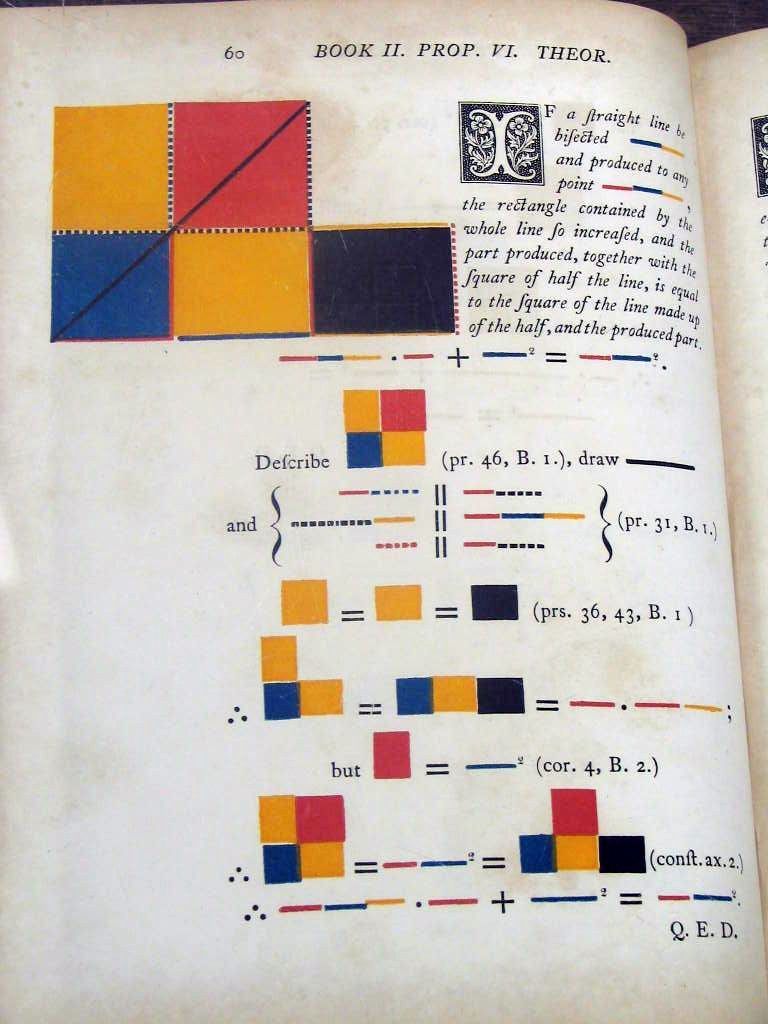 60 BOOK II. PROP. VI. THEOR.
IF a ſtraight line be
biſected
and produced to any
point ,
the rectangle contained by the
whole line ſo increaſed, and the
part produced, together with the
ſquare of half the line, is equal
to the ſquare of the line made up
of the half, and the produced part.
. + ² = ².
Deſcribe (pr. 46, B. 1.), draw
||
and { || } (pr. 31, B. 1.)
||
= = (prs. 36, 43, B. 1 )
∴ = = . ;
but = ² (cor. 4, B. 2.)
∴ = ² = (conſt. ax. 2.)
∴ . + ² = ².
Q. E. D.